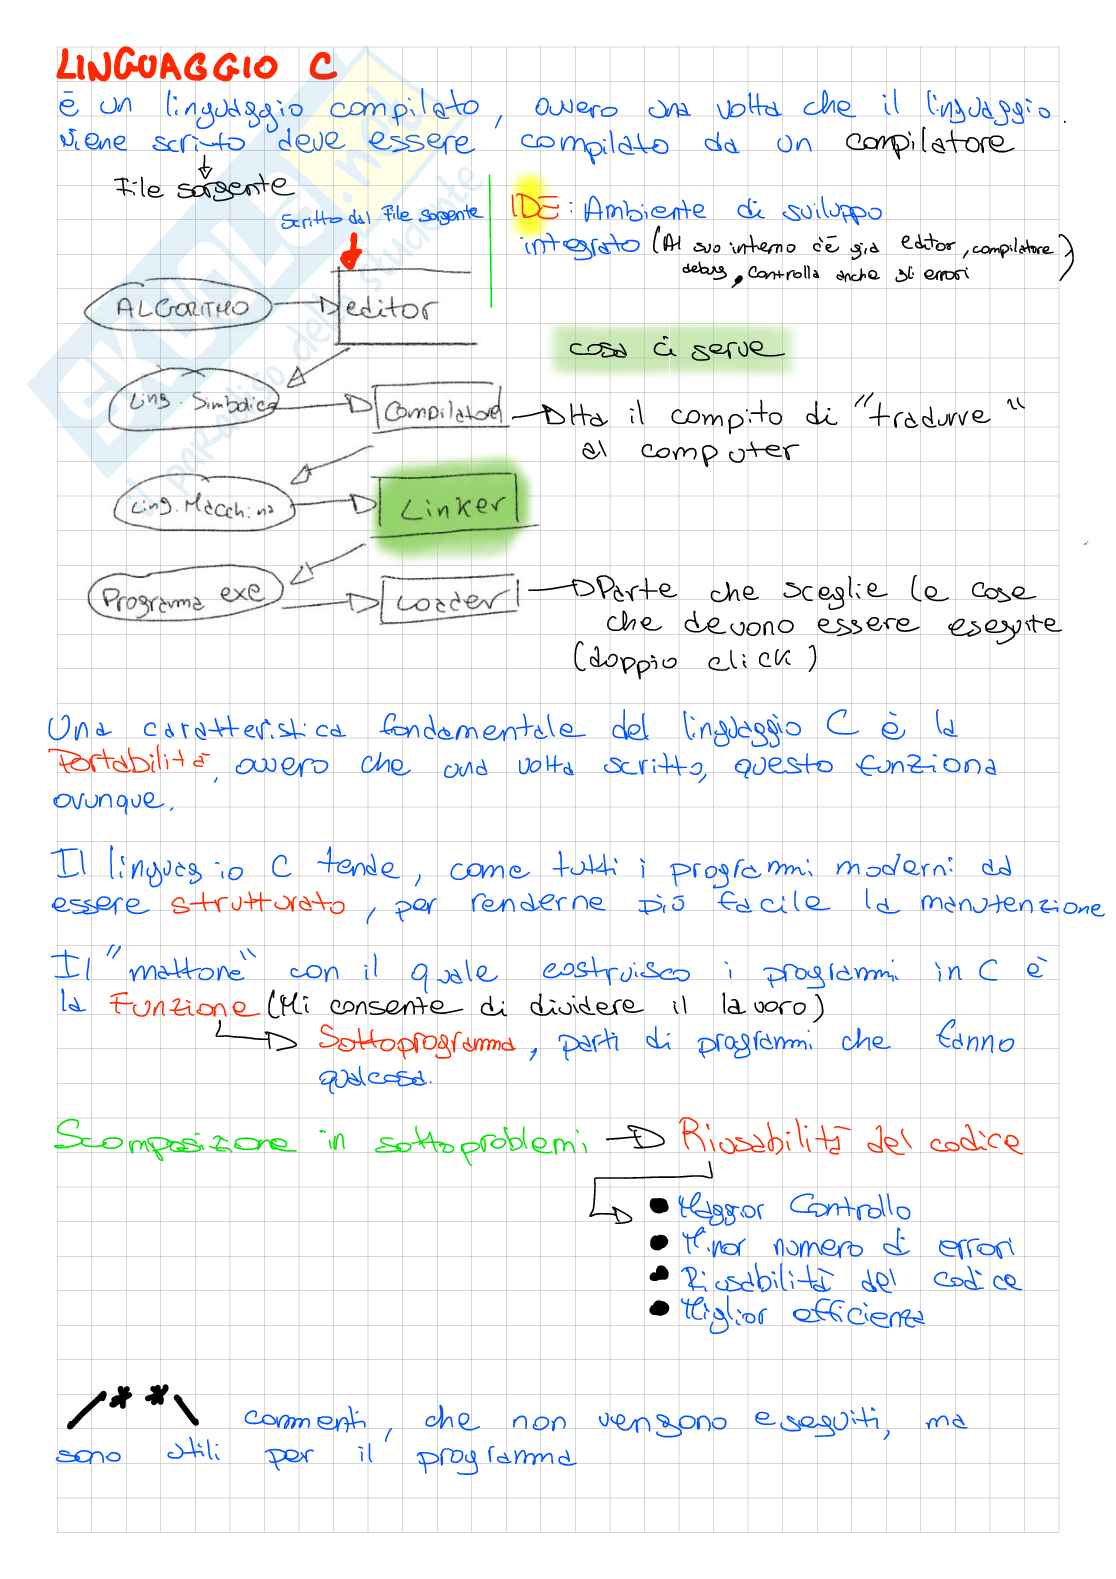 LINGUAGGIO C
è un linguaggio compilato, ovvero una volta che il linguaggio
viene scritto deve essere compilato da un compilatore
File sorgente
Scritto dal File sorgente
IDE: Ambiente di sviluppo
integrato (Al suo interno c'è già editor, compilatore
debug, controlla anche gli errori)
ALGORITMO
editor
cosa ci serve
Ling. Simbolica
Compilatore
Ha il compito di "tradurre"
al computer
Ling. Macchina
Linker
Programma exe
Loader
Parte che sceglie le cose
che devono essere eseguite
(doppio click)
Una caratteristica fondamentale del linguaggio C è la
Portabilità, ovvero che una volta scritto, questo funziona
ovunque.
Il linguaggio C tende, come tutti i programmi moderni ad
essere strutturato, per renderne più facile la manutenzione
Il "mattone" con il quale costruisco i programmi in C è
la Funzione (Mi consente di dividere il lavoro)
Sottoprogramma, parti di programmi che fanno
qualcosa.
Scomposizione in sottoproblemi Riusabilità del codice
Maggior Controllo
Minor numero di errori
Riusabilità del codice
Miglior efficienza
/* *\ commenti, che non vengono eseguiti, ma
sono utili per il programma
skuola.net
il paradiso dello studente